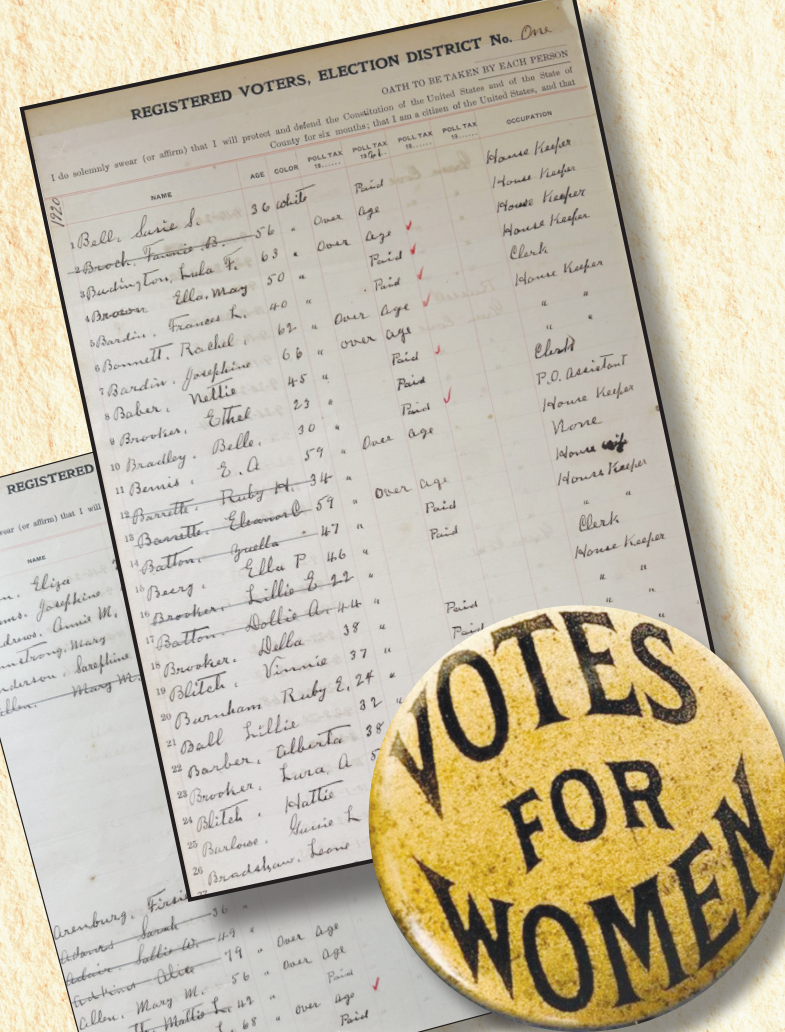 REGISTERED VOTERS, ELECTION DISTRICT No. One
OATH TO BE TAKEN BY EACH PERSON
I do solemnly swear (or affirm) that I will protect and defend the Constitution of the United States and of the State of
County for six months; that I am a citizen of the United States, and that
NAME AGE COLOR POLL TAX POLL TAX POLL TAX OCCUPATION
1920
1 Bell, Susie S. 36 white Paid House Keeper
2 Broch, Fannie B. 56 " Over age House Keeper
3 Budington, Lula F. 63 " Over age House Keeper
4 Brown Ella May 50 " Paid House Keeper
5 Bardin, Frances L. 40 " Paid Clerk
6 Bonnett, Rachel, 62 " Over Age House Keeper
7 Bardin, Josephine 66 " over age " "
8 Baber, Nettie 45 " Paid " "
9 Brooker, Ethel 23 " Paid Clerk
10 Bradley, Belle, 30 " Paid P.O. Assistant
11 Bemis, E. A 59 " Over age House Keeper
12 Barrette, Ruby H. 34 " None
13 Barrette, Eleanor C 59 " Over age House wife
14 Batton, Zuella 47 " Paid House Keeper
15 Beery, Ella P 46 " Paid " "
16 Brooker, Lillie E 22 " Clerk
17 Batton, Dollie A. 44 " House Keeper
18 Brooker, Della 38 " Paid " "
19 Blitch, Vinnie 37 " Paid " "
20 Burnham Ruby E. 24 "
21 Ball Lillie 32 "
22 Barber, Alberta 38
23 Brooker, Lura, A 5
24 Blitch, Hattie
25 Barlowe, L
26 Bradshaw, Leone
REGISTERED
swear (or affirm) that I will
NAME
Eliza
Josephine
Annie M.
Mary
Sarephine
Mary M.
Adams Sarah 36 "
Adair, Sallie W. 49 "
Alice 79 " Over age
Allen, Mary M. 56 " Over age
Mattie L. 42 " Paid
L. 68 " over age
Paid
VOTES
FOR
WOMEN